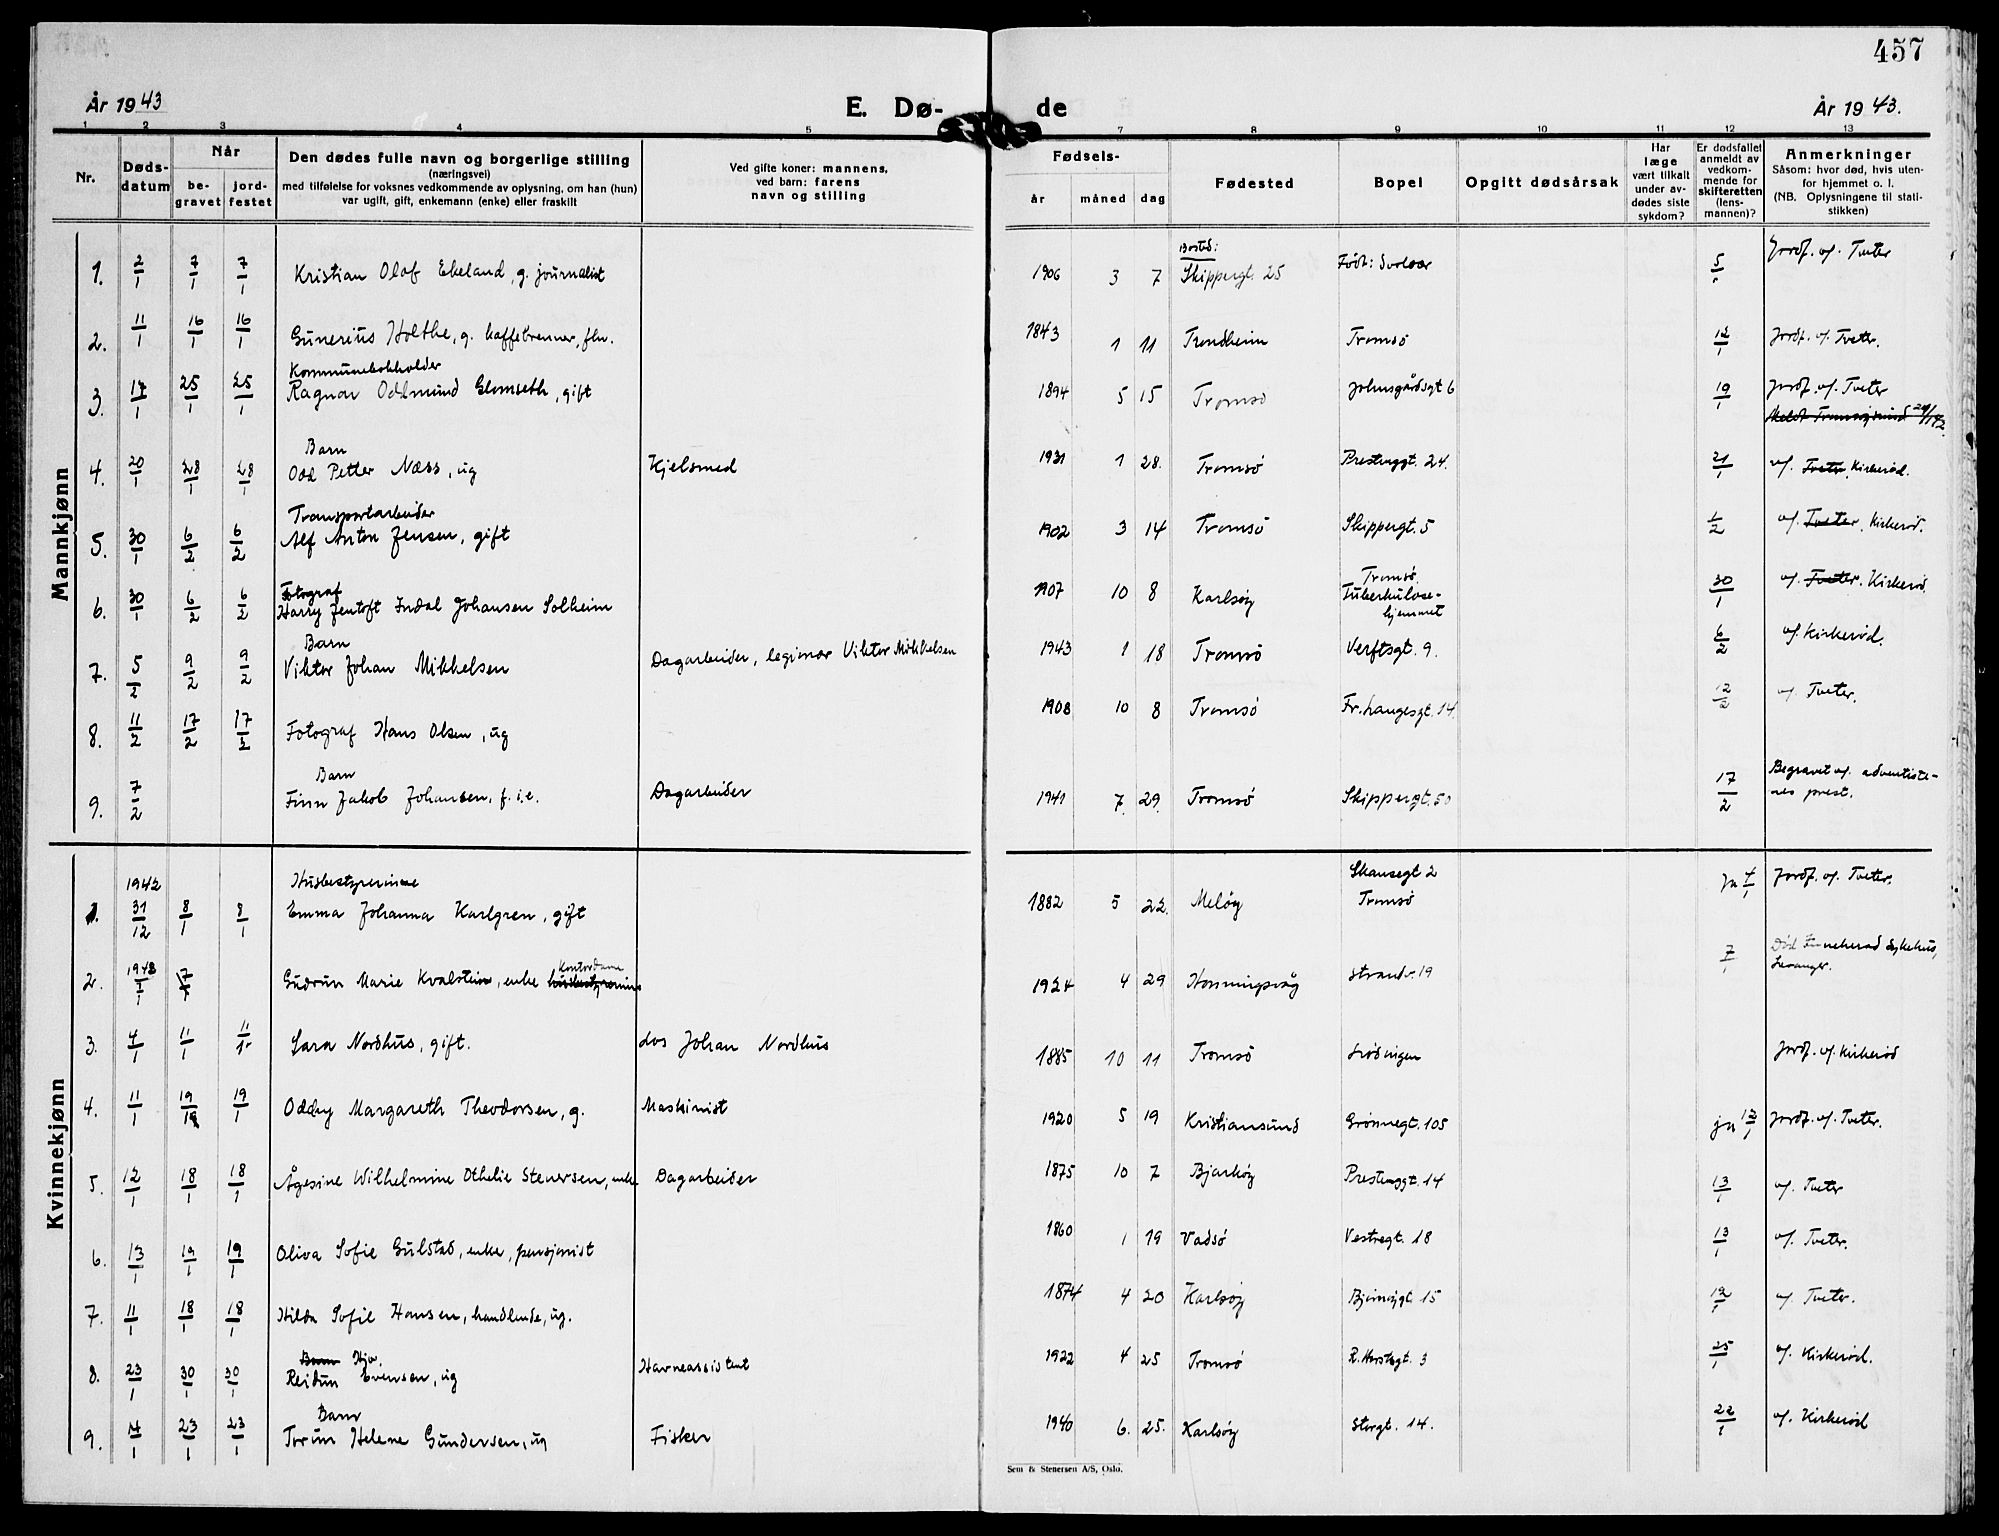 457
År 1943
E. Dø-
de
År 1943.
1 2 3 4 5 7 8 9 10 11 12 13
Nr.
Døds-
datum
Når
be-
gravet
jord-
festet
Den dødes fulle navn og borgerlige stilling
(næringsvei)
med tilføielse for voksnes vedkommende av oplysning, om han (hun)
var ugift, gift, enkemann (enke) eller fraskilt
Ved gifte koner: mannens,
ved barn: farens
navn og stilling
Fødsels-
år måned dag
Fødested
Bopel
Opgitt dødsårsak
Har
læge
vært tilkalt
under av-
dødes siste
sykdom?
Er dødsfallet
anmeldt av
vedkom-
mende for
skifteretten
(lens-
mannen)?
Anmerkninger
Såsom: hvor død, hvis uten-
for hjemmet o. l.
(NB. Oplysningene til stati-
stikken)
Mannkjønn
Bosted:
1. 2/1 7/1 7/1 Kristian Olaf Ekeland, g. journalist 1906 3 7 Skippergt. 25 Født: Svolvær 5/1 Jordf. v/. Tveter
2. 11/1 16/1 16/1 Gunerius Holthe, g. kaffebrenner, fhv. 1843 1 11 Trondheim Tromsö 12/1 Jordf. v/. Tveter.
Kommunebokholder
3. 17/1 25/1 25/1 Ragnar Oddmund Glomseth, gift 1894 5 15 Tromsö Johnsgårdsgt 6 19/1 Jordf. v/. Tveter
Barn
4. 20/1 28/1 28/1 Odd Petter Næss, ug Kjelsmed 1931 1 28. Tromsö Prestenggt. 24. 21/1 v/. Tveter Kirkerød.
Transportarbeider
5. 30/1 6/2 6/2 Alf Anton Jensen, gift 1902 3 14 Tromsö Skippergt. 5 1/2 v/. Tveter. Kirkerød.
Fotograf
6. 30/1 6/2 6/2 Harry Jentoft Indal Johansen Solheim 1907 10 8 Karlsöy Tromsö Tuberkulose-
hjemmet 30/1 v/. Tveter. Kirkerød
Barn
7. 5/2 9/2 9/2 Viktor Johan Mikkelsen Dagarbeider, legionær Viktor Mikkelsen 1943 1 18 Tromsö Verftsgt. 9. 6/2 v/. Kirkerød.
8. 11/2 17/2 17/2 Fotograf Hans Olsen, ug 1908 10 8 Tromsö Fr. Langesgt. 14. 12/2 v/. Tveter.
Barn
9. 7/2 Finn Jakob Johansen, f. i. e. Dagarbeider 1941 7. 29. Tromsö Skippergt. 50 17/2 Begravet v/. adventiste-
nes prest.
Kvinnekjønn
1942 Husbestyrerinne
1. 31/12 8/1 8/1 Emma Johanna Karlgren, gift 1882 5 22. Meløy Skansegt 2
Tromsö ja 4/1 Jordf. v/. Tveter.
Kontordame
2. 1943 1/1 7/1 Gudrun Marie Kvalstein, enke husbestyrerinne 1924 4 29 Honningsvåg Strandv. 19 7/1 Død Innherad Sykehus,
Levanger.
3. 4/1 11/1 11/1 Sara Nordhus, gift. Los Johan Nordhus 1885 10 11 Tromsö Lödingen Jordf. v/. Kirkerød
4. 11/1 19/1 19/1 Oddny Margareth Theodorsen, g. Maskinist 1920 5 19 Kristiansund Grønnegt. 105 ja 12/1 Jordf. v/. Tveter.
5. 12/1 18/1 18/1 Ågesine Wilhelmine Othelie Stenersen, enke Dagarbeider 1875 10 7 Bjarköy Prestenggt. 14 13/1 v/. Tveter
6. 13/1 19/1 19/1 Oliva Sofie Gulstad, enke, pensjonist 1860 1 19 Vadsö Vestregt. 18 13/1 v/. Tveter.
7. 11/1 18/1 18/1 Hilda Sofie Hansen, handlende, ug. 1874 4 20 Karlsöy Bjørnøygt. 15 12/1 v/. Tveter.
Barn
8. 23/1 30/1 30/1 Reidun Evensen, ug Havneassistent 1922 4 25 Tromsö 3 25/1 v/. Kirkerød.
Barn
9. 14/1 23/1 23/1 Torun Helene Gundersen, ug Fisker 1940 6. 25. Karlsöy Storgt. 14. 22/1 v/. Kirkerød
Sem & Stenersen A/S, Oslo.